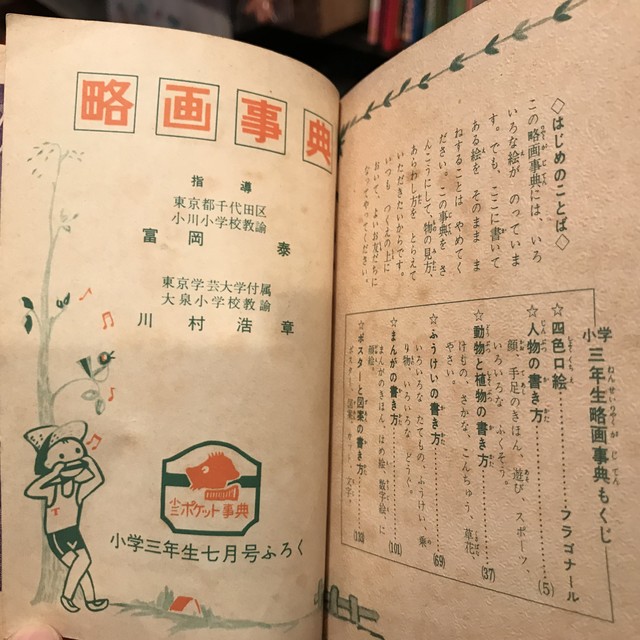 略画事典
指導
東京都千代田区
小川小学校教諭
富岡泰
東京学芸大学付属
大泉小学校教諭
川村浩章
小三ポケット事典
小学三年生七月号ふろく
T
◇はじめのことば◇
この略画事典には、いろ
いろな絵が のっていま
す。でも、ここに書いて
ある絵を そのまま ま
ねすることは やめてく
ださい。この事典を さ
んこうにして、物の見方、
あらわし方を とらえて
いただきたいからです。
いつも つくえの上に
おいて、よいお友だちに
なってやってください。
小学三年生略画事典もくじ
☆四色口絵……フラゴナール
☆人物の書き方……(5)
顔、手足のきほん、遊び スポーツ、
いろいろな ふくそう。
☆動物と植物の書き方……(37)
けもの、さかな、こんちゅう、草花、
やさい。
☆ふうけいの書き方……(69)
いろいろな たてもの、ふうけい、乗
り物、いろいろな どうぐ。
☆まんがの書き方……(101)
まんがのきほん、はめ絵、数字絵に
顔絵。
☆ポスターと図案の書き方……(133)
ポスター、図案、カット、文字